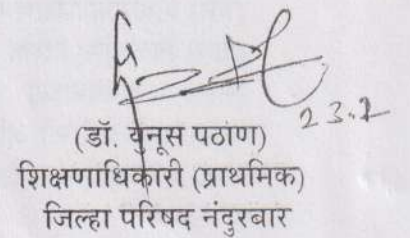 23.2
(डॉ. युनूस पठाण)
शिक्षणाधिकारी (प्राथमिक)
जिल्हा परिषद नंदुरबार